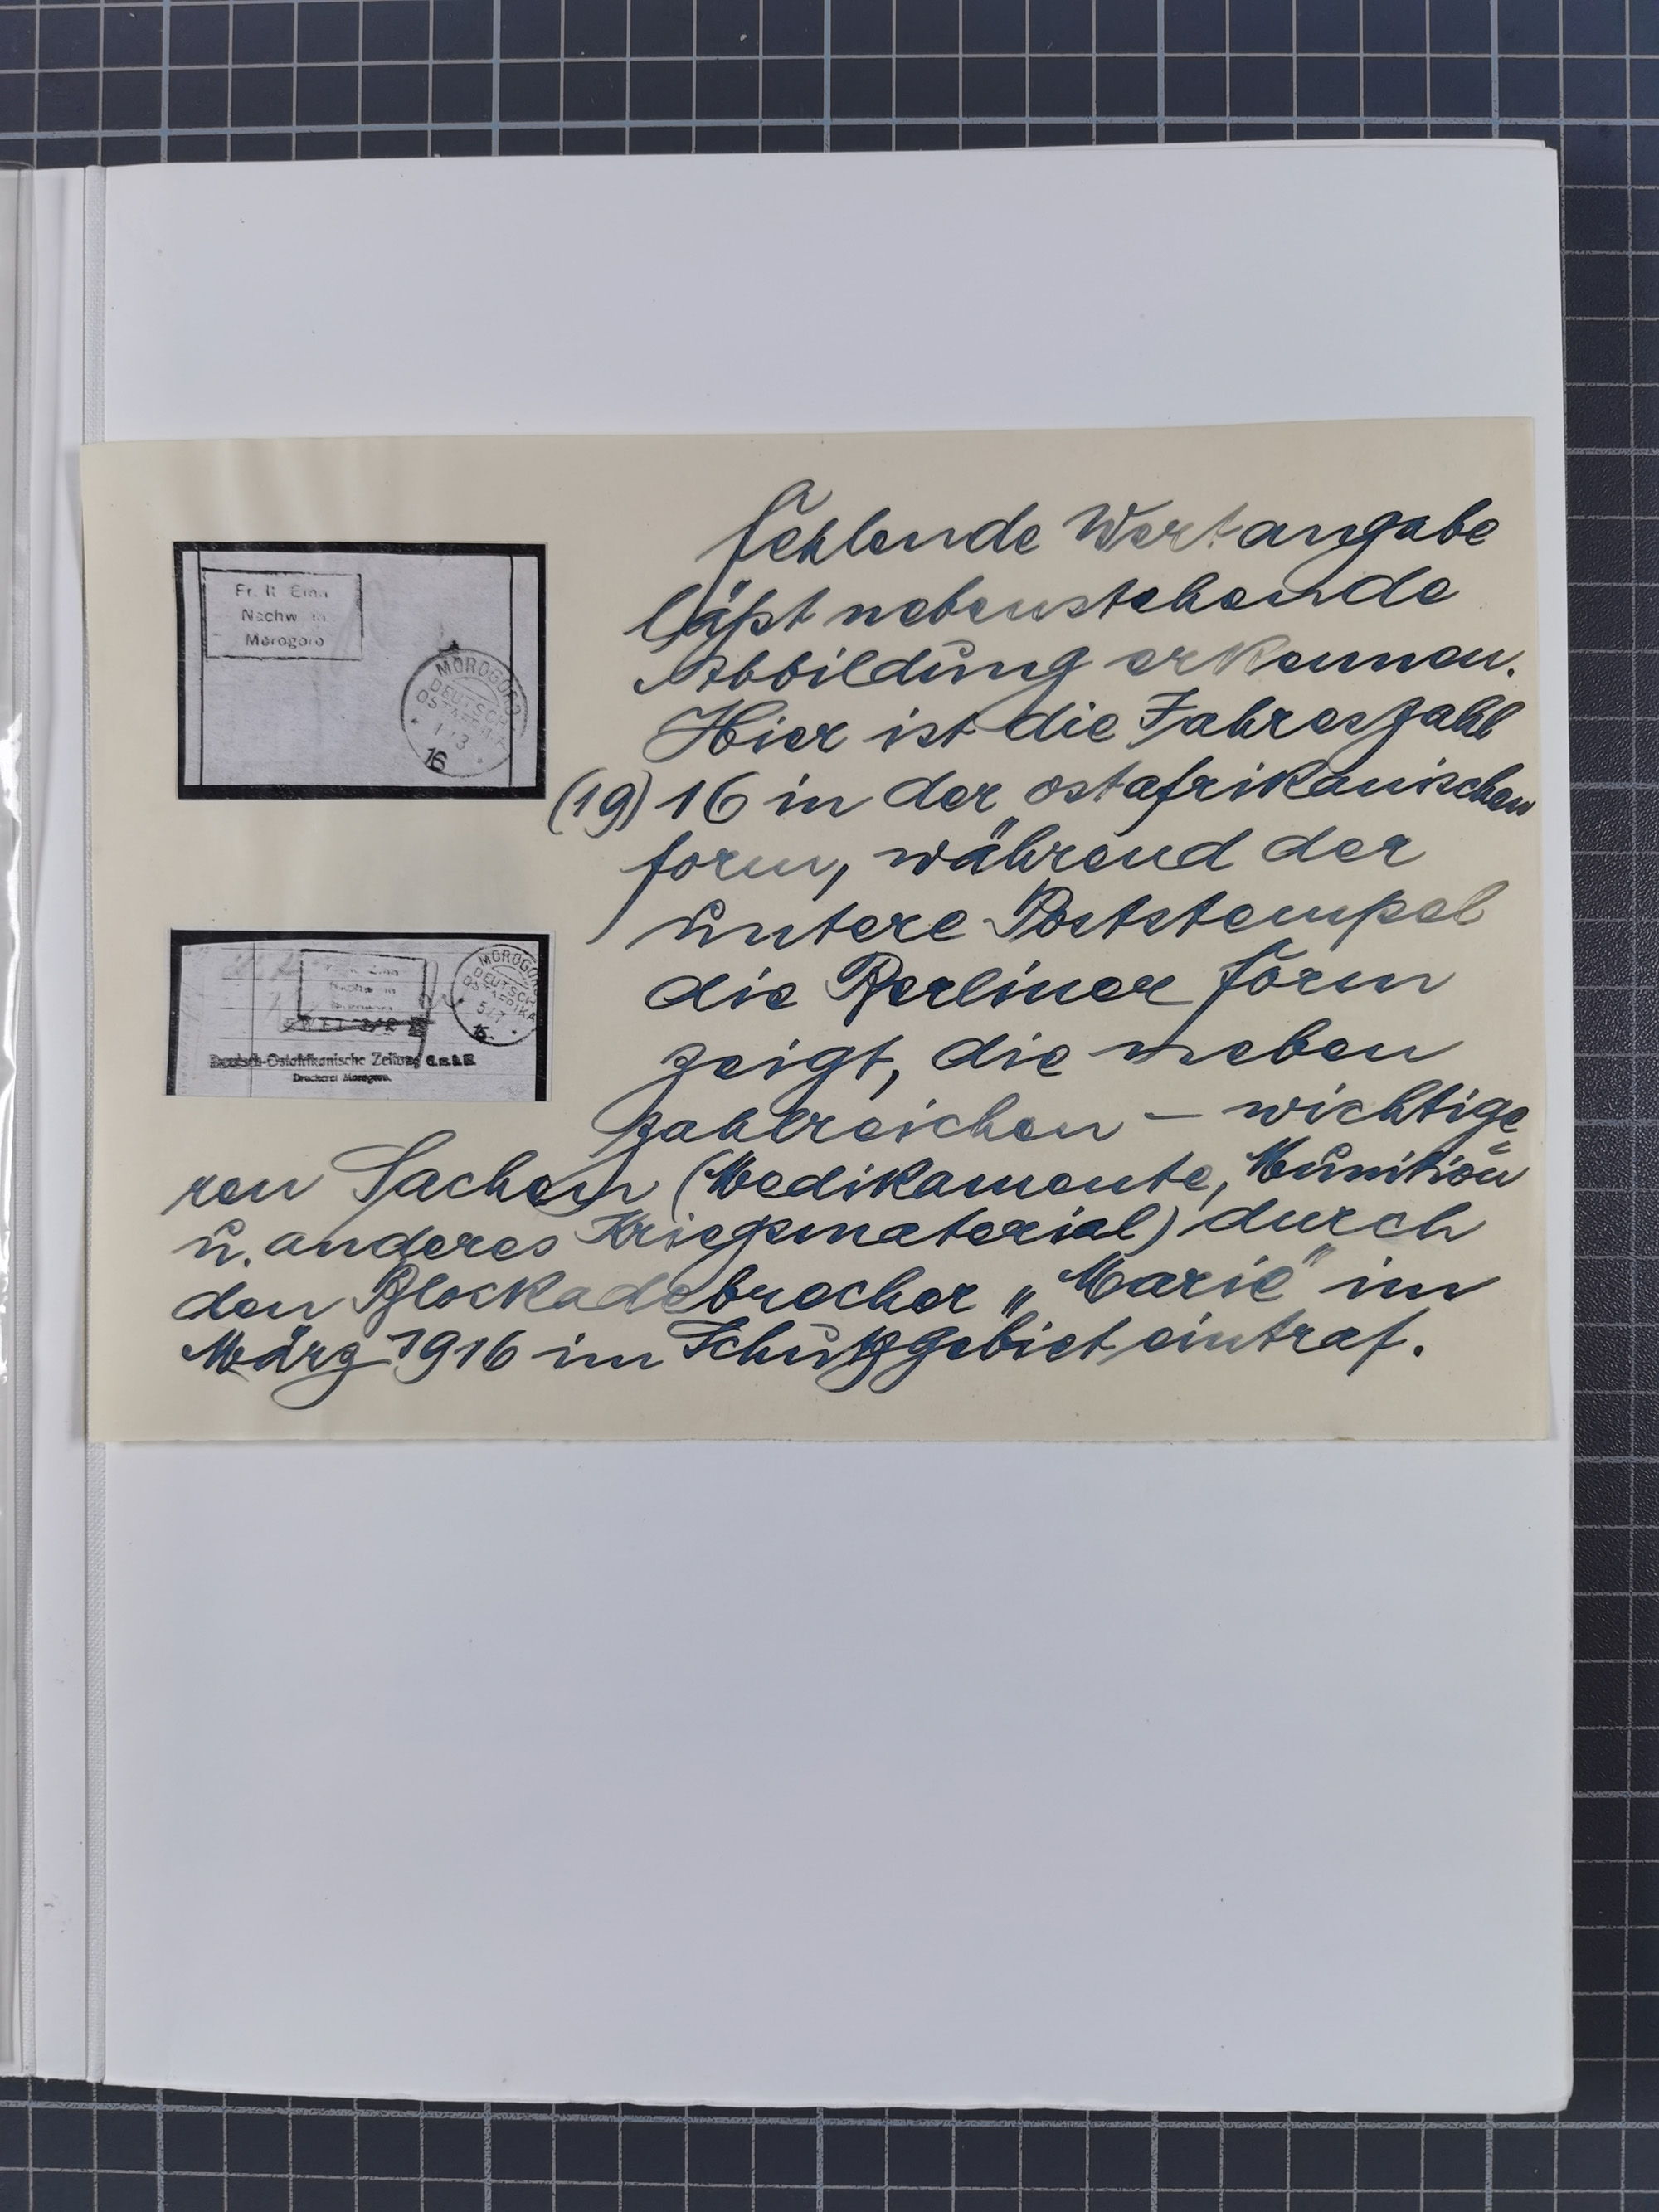 Fr. lt. Einn
Nachw in
Morogoro
MOROGORO
DEUTSCH
OSTAFRIKA
1 3
16
MOROGORO
DEUTSCH
OSTAFRIKA
5/7
Nachw in
Deutsch-Ostafrikanische Zeitung G.m.b.H.
Druckerei Morogoro.
fehlende Wertangabe
läßt nebenstehende
Abbildung erkennen.
Hier ist die Jahreszahl
(19) 16 in der ostafrikanischen
Form, während der
untere Poststempel
die Berliner Form
zeigt, die neben
zahlreichen – wichtige=
ren Sachen (Medikamente, Munition
u. anderes Kriegsmaterial) durch
den Blockadebrecher „Marie" im
März 1916 im Schutzgebiet eintraf.